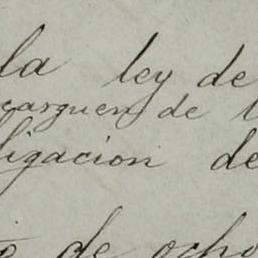 la ley de
carguen de
ligacion de
de ocho